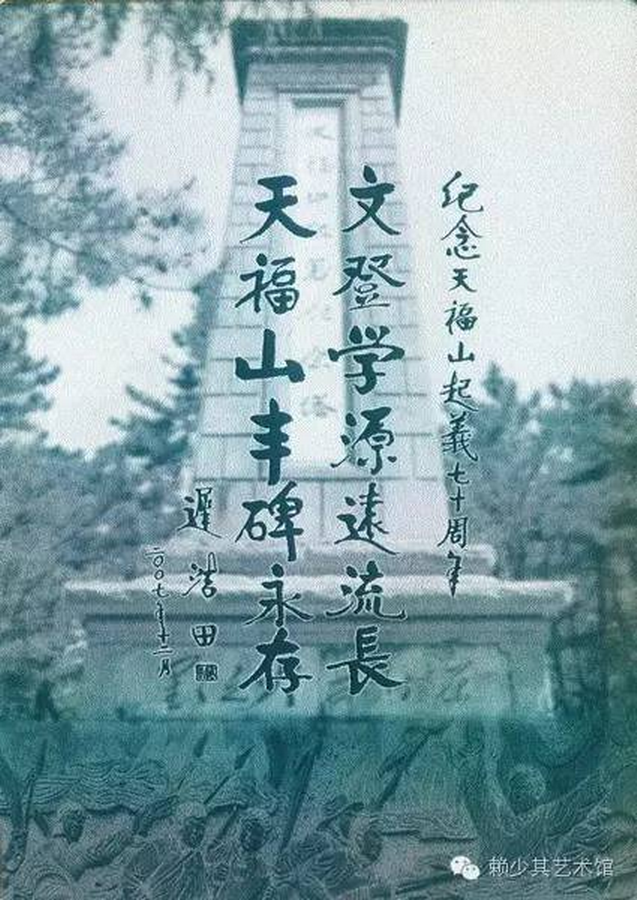 纪念天福山起義七十周年
文登学源遠流長
天福山丰碑永存
遲浩田
二〇〇七年十二月
赖少其艺术馆